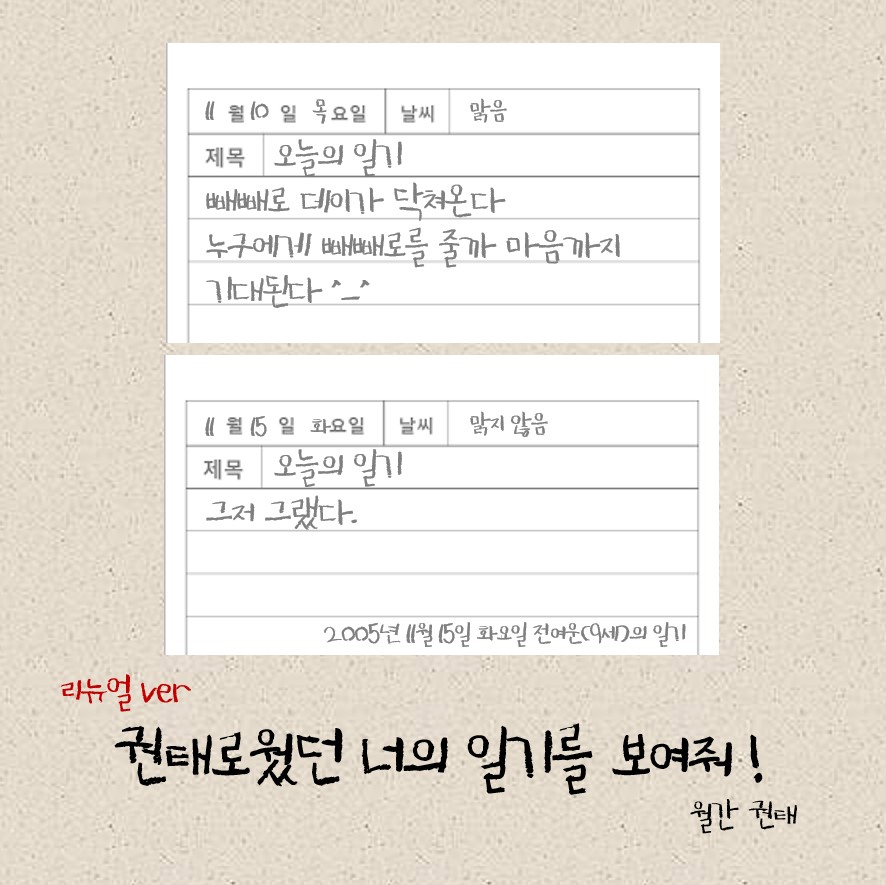 11 월 10 일 목요일 날씨 맑음
제목 오늘의 일기
빼빼로 데이가 닥쳐온다
누구에게 빼빼로를 줄까 마음까지
기대된다 ^_^
11 월 15 일 화요일 날씨 맑지 않음
제목 오늘의 일기
그저 그랬다.
2005년 11월 15일 화요일 전여운(9세)의 일기
리뉴얼 ver
권태로웠던 너의 일기를 보여줘!
월간 권태